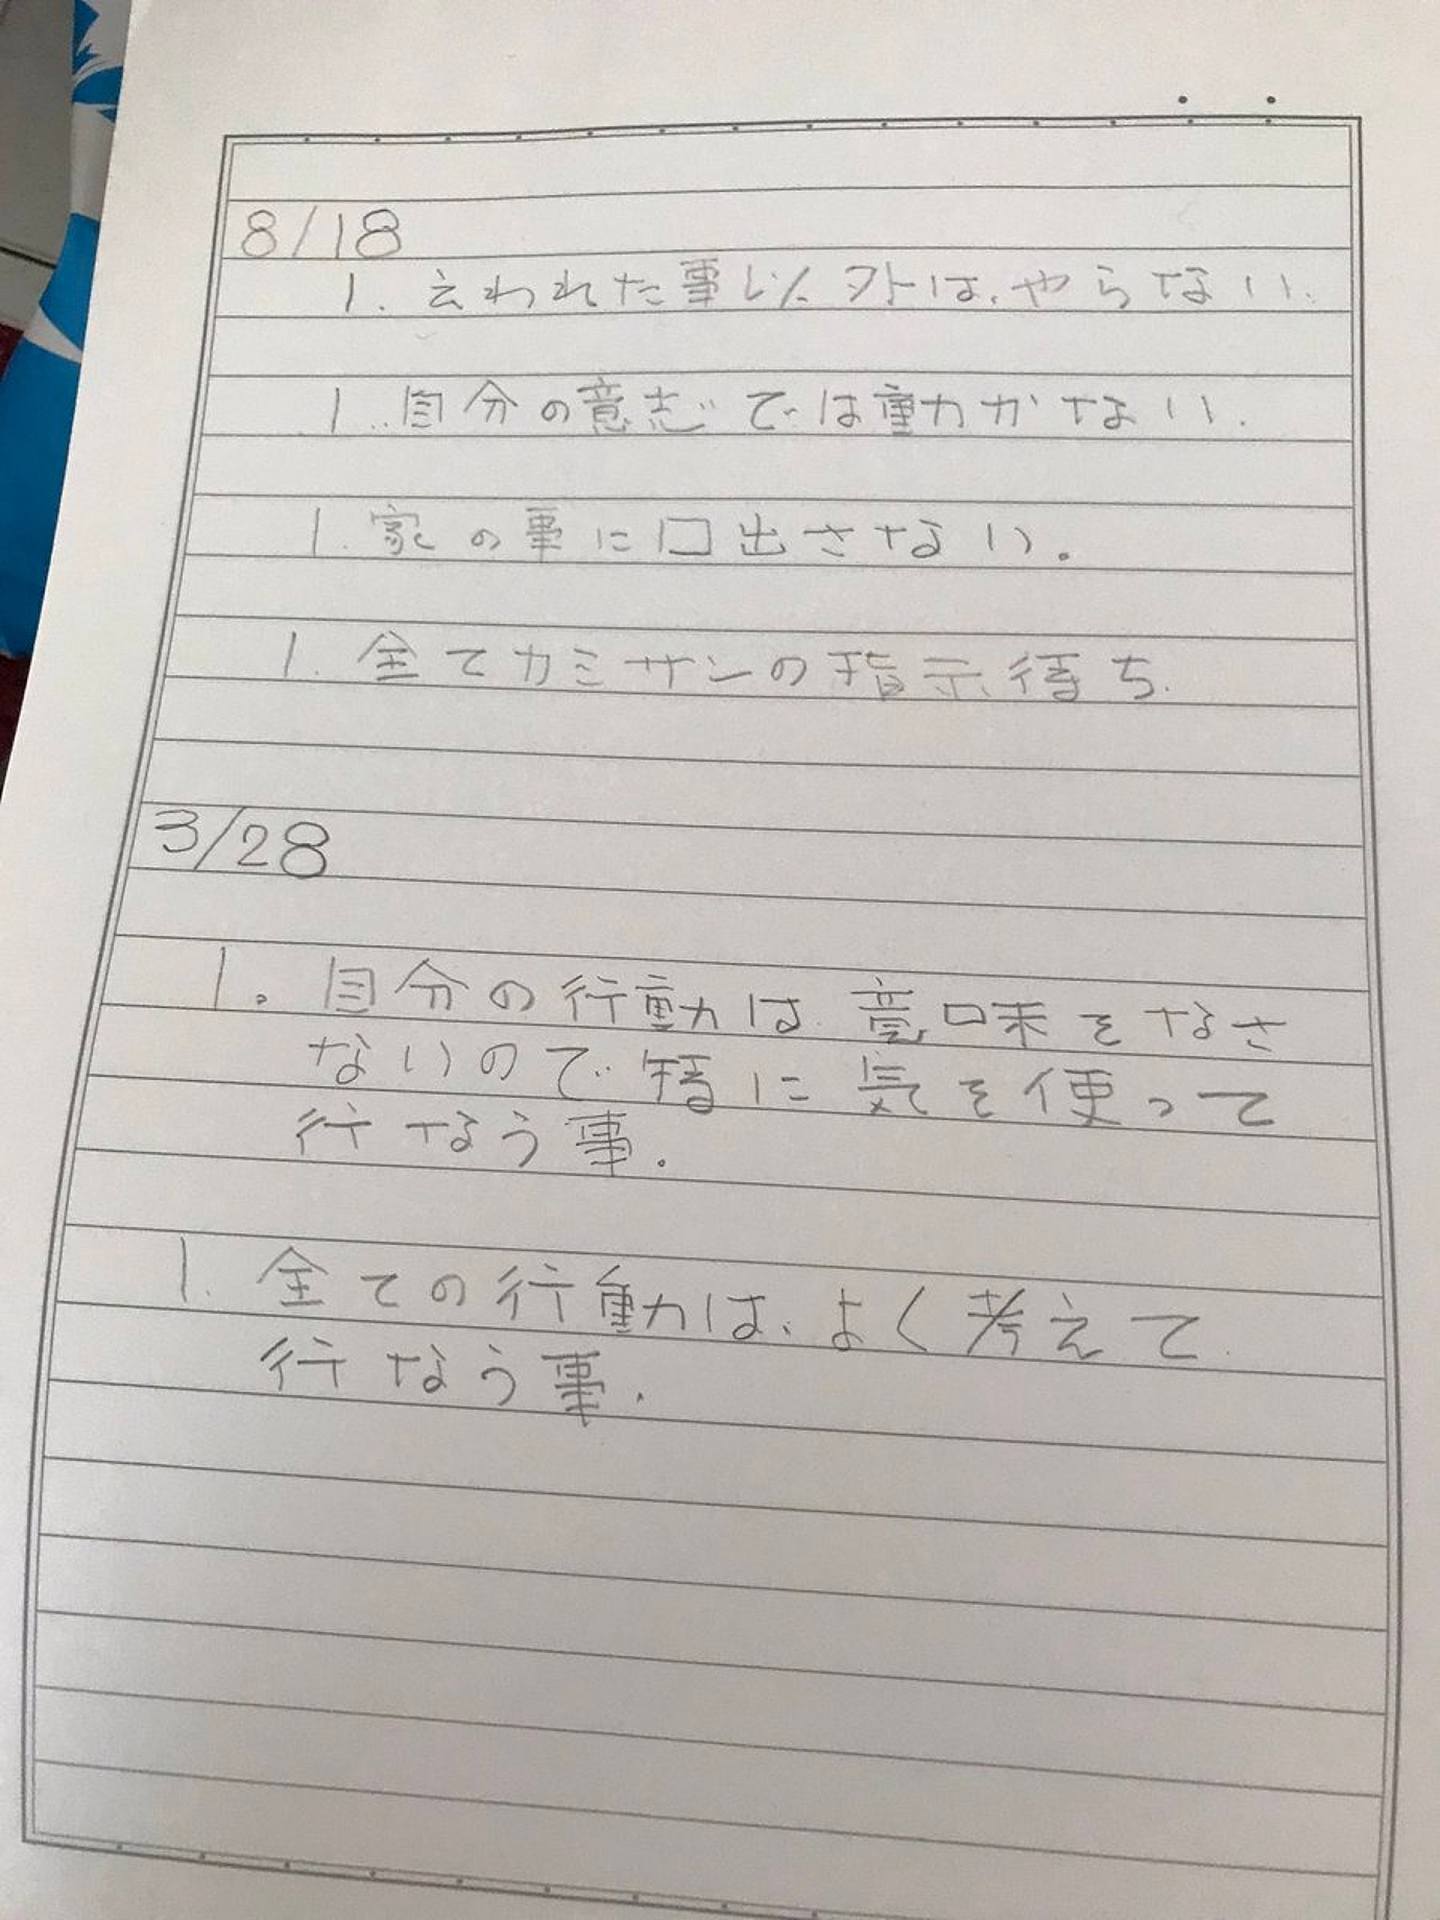 8/18
1. 云われた事以外は、やらない.
1. 自分の意志では動かない.
1. 家の事に口出さない。
1. 全てカミサンの指示待ち.
3/28
1。自分の行動は意味をなさ
ないので特に気を使って
行なう事.
1. 全ての行動は、よく考えて
行なう事.